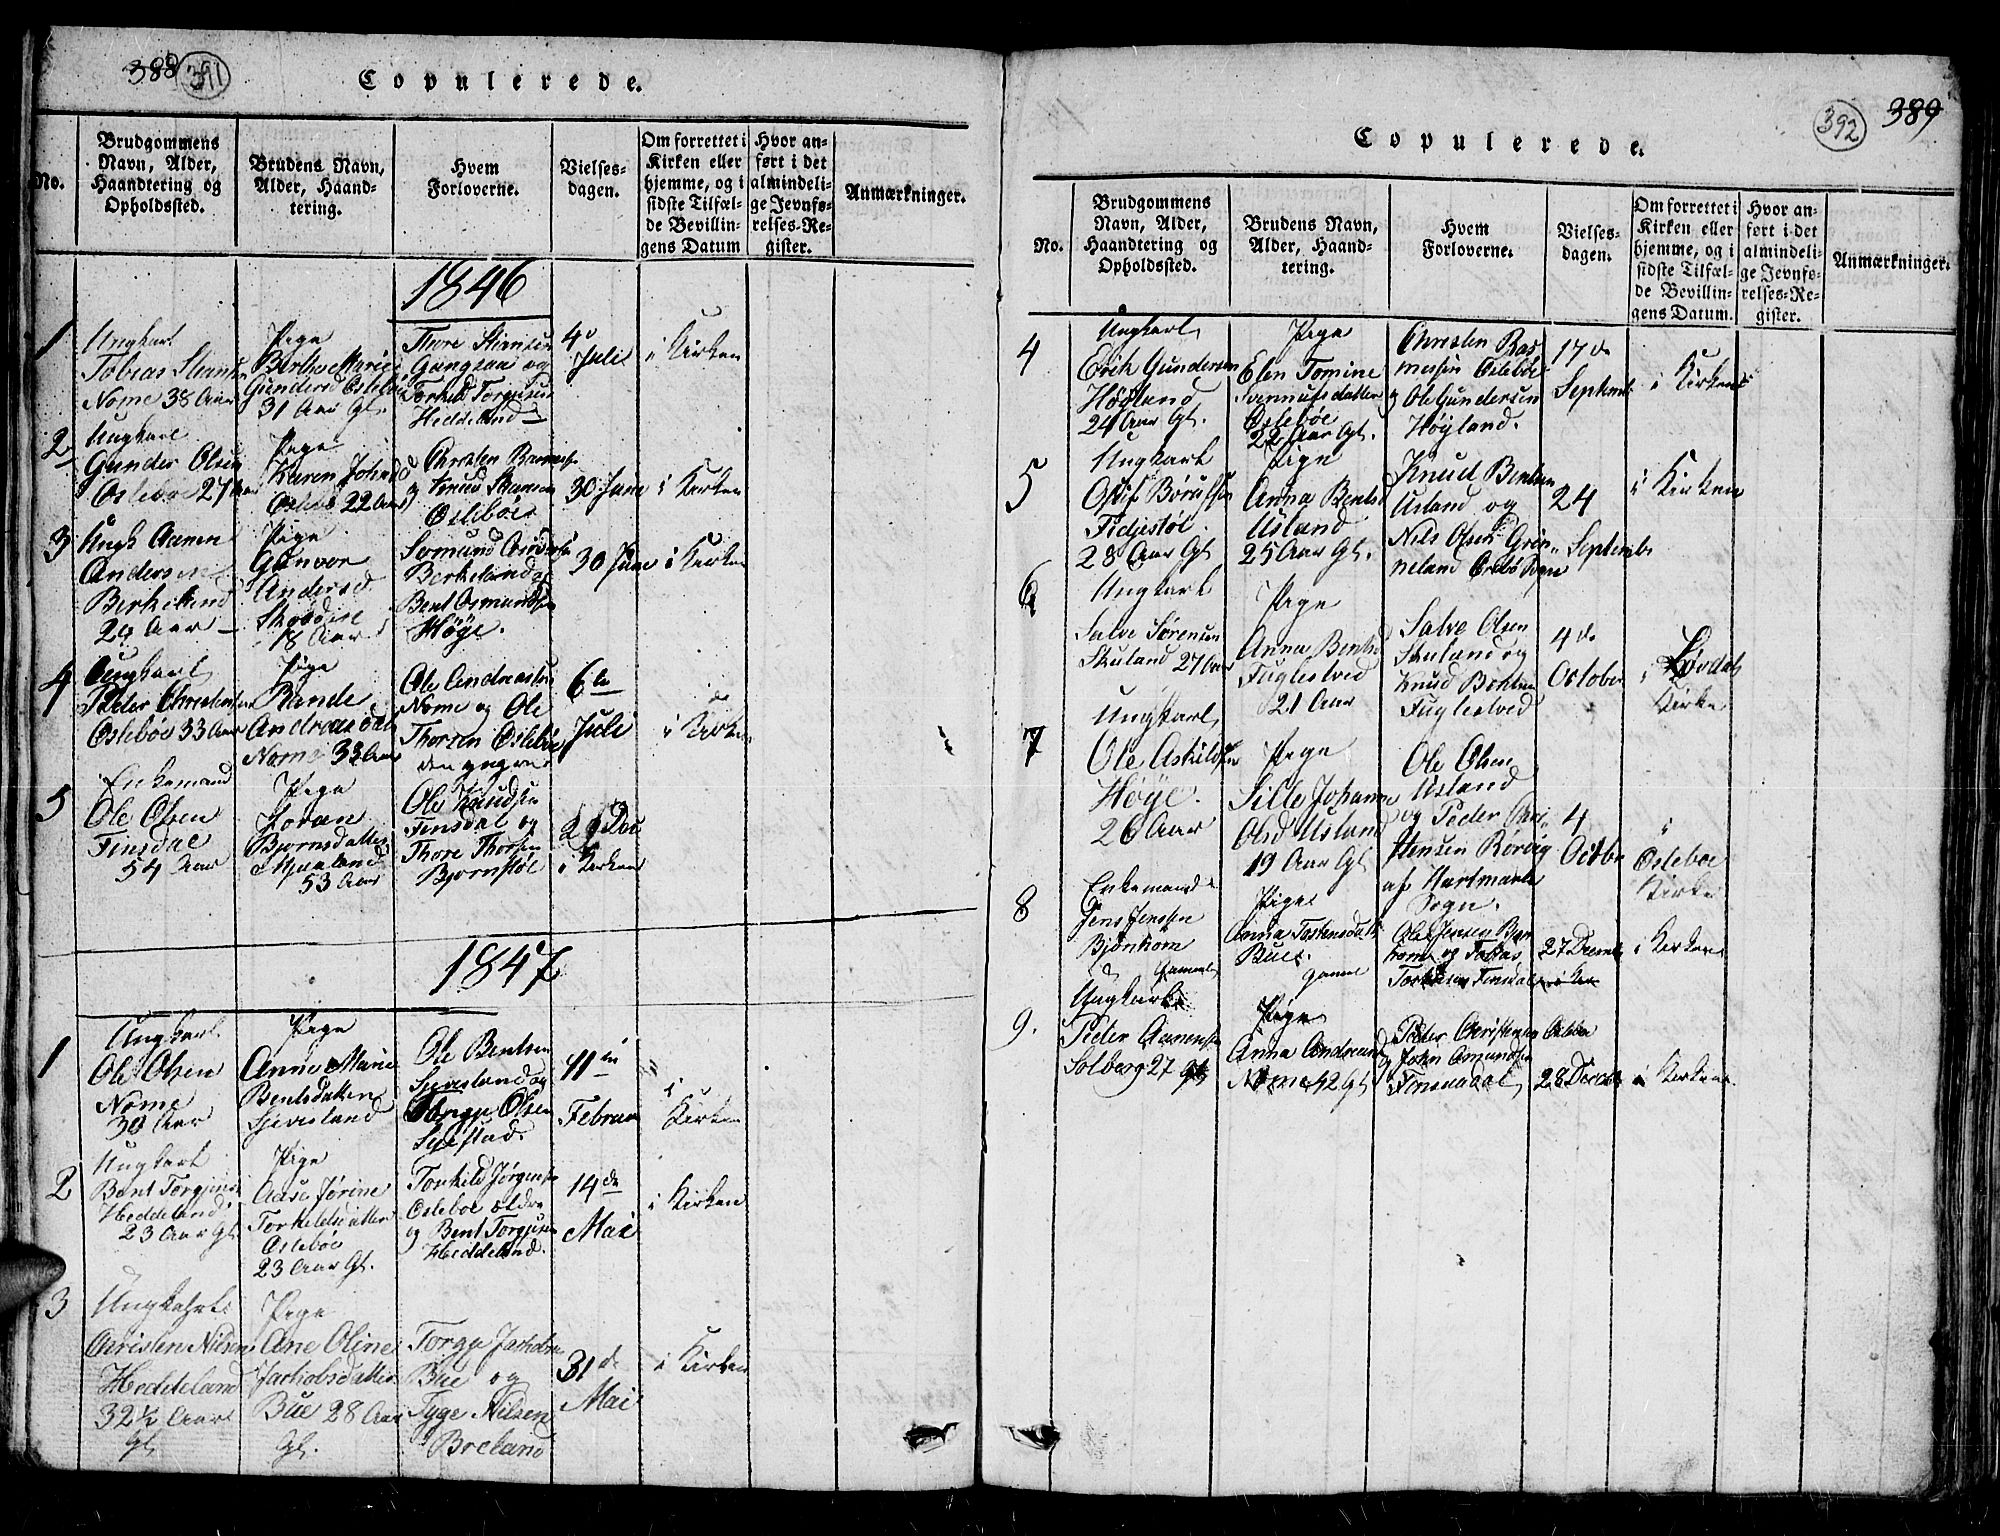 388 391
Copulerede.
No.
Brudgommens
Navn, Alder,
Haandtering og
Opholdssted.
Brudens Navn,
Alder, Haand-
tering.
Hvem
Forloverne.
Vielses-
dagen.
Om forrettet i
Kirken eller
hjemme, og i
sidste Tilfæl-
de Bevillin-
gens Datum
Hvor an-
ført i det
almindeli-
ge Jevnfø-
relses-Re-
gister.
Anmærkninger.
1846
1
Ungkarl
Tobias
Nome 38 Aar
Pige
Berthe Marie
Gundersd Oslebö
31 Aar Gl.
Thore Stiansen
Gangsaa og
Torkild Torgjusen
Heddeland
4de
Juli
i Kirken
2
Ungkarl
Gunder Olsen
Osleboe 27 Aar
Pige
Karen Johnsd
Oslebö 22 Aar
Christen
og Knud
Osleböe
30 June
i Kirken
3
Ungk Aanen
Andersen
Berkeland
24 Aar
Pige
Gunvor
Andersd
18 Aar
Berkeland og
Bent Osmundsen
Höye.
30 June
i Kirken
4
Ungkarl
Peder Christensen
Osleböe 33 Aar
Pige
Rande
Andreasdat
Nome 33 Aar
Ole Andreasen
Nome og Ole
Thorsen Osleböe
den yngre
6te
Juli
i Kirken
5
Enkemand
Ole Olsen
Finsdal
54 Aar
Pige
Joran
Bjornsdatter
53 Aar
Ole Knudsen
Finsdal og
Thore Thorsen
Bjornstöl
29 Dec
i Kirken
1847
1
Ungkarl
Ole Olsen
Nome
30 Aar
Pige
Anne Marie
Bentsdatter
Sjevesland
Ole Bentsen
Sjevesland og
Olsen
11te
Februar
i
Kirken
2
Ungkarl
Bent Torgjusen
Heddeland
23 Aar Gl.
Pige
Aase Jörine
Torkeldsdatter
Osleböe
23 Aar Gl.
Torkild Jörgensen
Osleboe ældre
og Bent Torgjusen
Heddeland.
14de
Mai
i Kirken
3
Ungkarl
Christen Nilsen
Heddeland
32½ Aar
Gl
Pige
Ane Oline
Jackobsdatter
Bue 28 Aar
Gl.
Torgje Jackobsen
Bue og
Tyge Nilsen
Breland
31de
Mai
i Kirken
392 389
Copulerede.
No.
Brudgommens
Navn, Alder,
Haandtering og
Opholdssted.
Brudens Navn,
Alder, Haand-
tering.
Hvem
Forloverne.
Vielses-
dagen.
Om forrettet i
Kirken eller
hjemme, og i
sidste Tilfæl-
de Bevillin-
gens Datum.
Hvor an-
ført i det
almindeli-
ge Jevnfø-
relses-Re-
gister.
Anmærkninger.
4
Ungkarl
Erik Gundersen
Höyland
24 Aar Gl.
Pige
Elen Tomine
Svennufsdatter
Osleboe
22 Aar Gl.
Christen Ras
mussen Osleböe
og Ole Gundersen
Höyland.
17de
Septemb
i Kirken
5
Ungkarl
Fidjestöl.
28 Aar Gl
Pige
Anna Bentsd
Usland
25 Aar Gl.
Knud Bentsen
Usland og
Nils Olsen Grön-
neland
24
Septembr
i Kirken
6
Ungkarl
Salve Sörensen
Skuland 27 Aar
Pige
Anna Bentsd
Fuglestved
21 Aar
Salve Olsen
Skuland og
Knud
Fuglestved
4de
October
i Lövdals
Kirke
7
Ungkarl
Ole Askildsen
Höye.
26 Aar
Pige
Sille Johanne
Olsd Usland
19 Aar Gl
Ole Olsen
Usland
og Peder Chri-
stensen Rörvig
af Hartmark
Sogn.
4
Octbr
i
Osleboe
Kirke
8
Enkemand
Jens Jensen
Bjönhom
Gammel
Pige
Anna Tostensdatt
Bue.
Gamel
Ole Jensen
og Tobias
Finsdal
27 Decemb
i Kirken
9.
Ungkarl
Peder Aanensen
Solberg 27 Gl
Pige
Anna Andreasd
Nome 42 Gl
Peder Christensen Oslebö
og John Asmundsen
Finsdal
28 Decbr
i Kirken